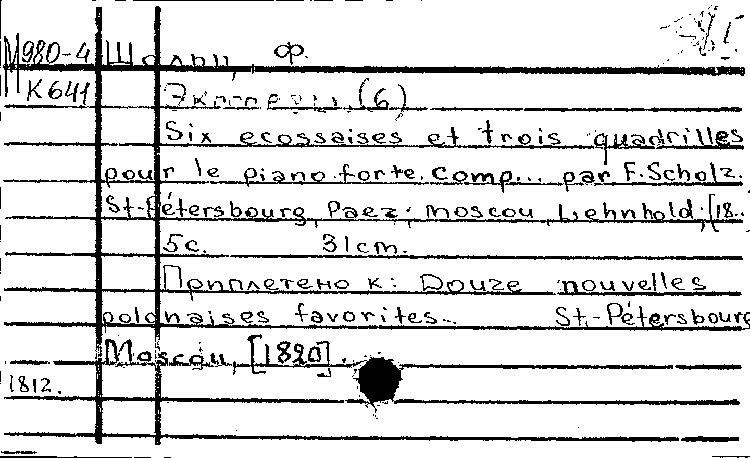 М980-4 Шольц, Ф.
К641 Экосезы (6)
Six ecossaises et trois quadrilles
pour le piano-forte. comp... par F. Scholz.
St-Pétersbourg, Paez; Moscou, Lehnhold, [18..
5 с. 31 cm.
Приплетено к: Douze nouvelles
polonaises favorites... St.-Pétersbourg
Moscou, [1820].
1812.